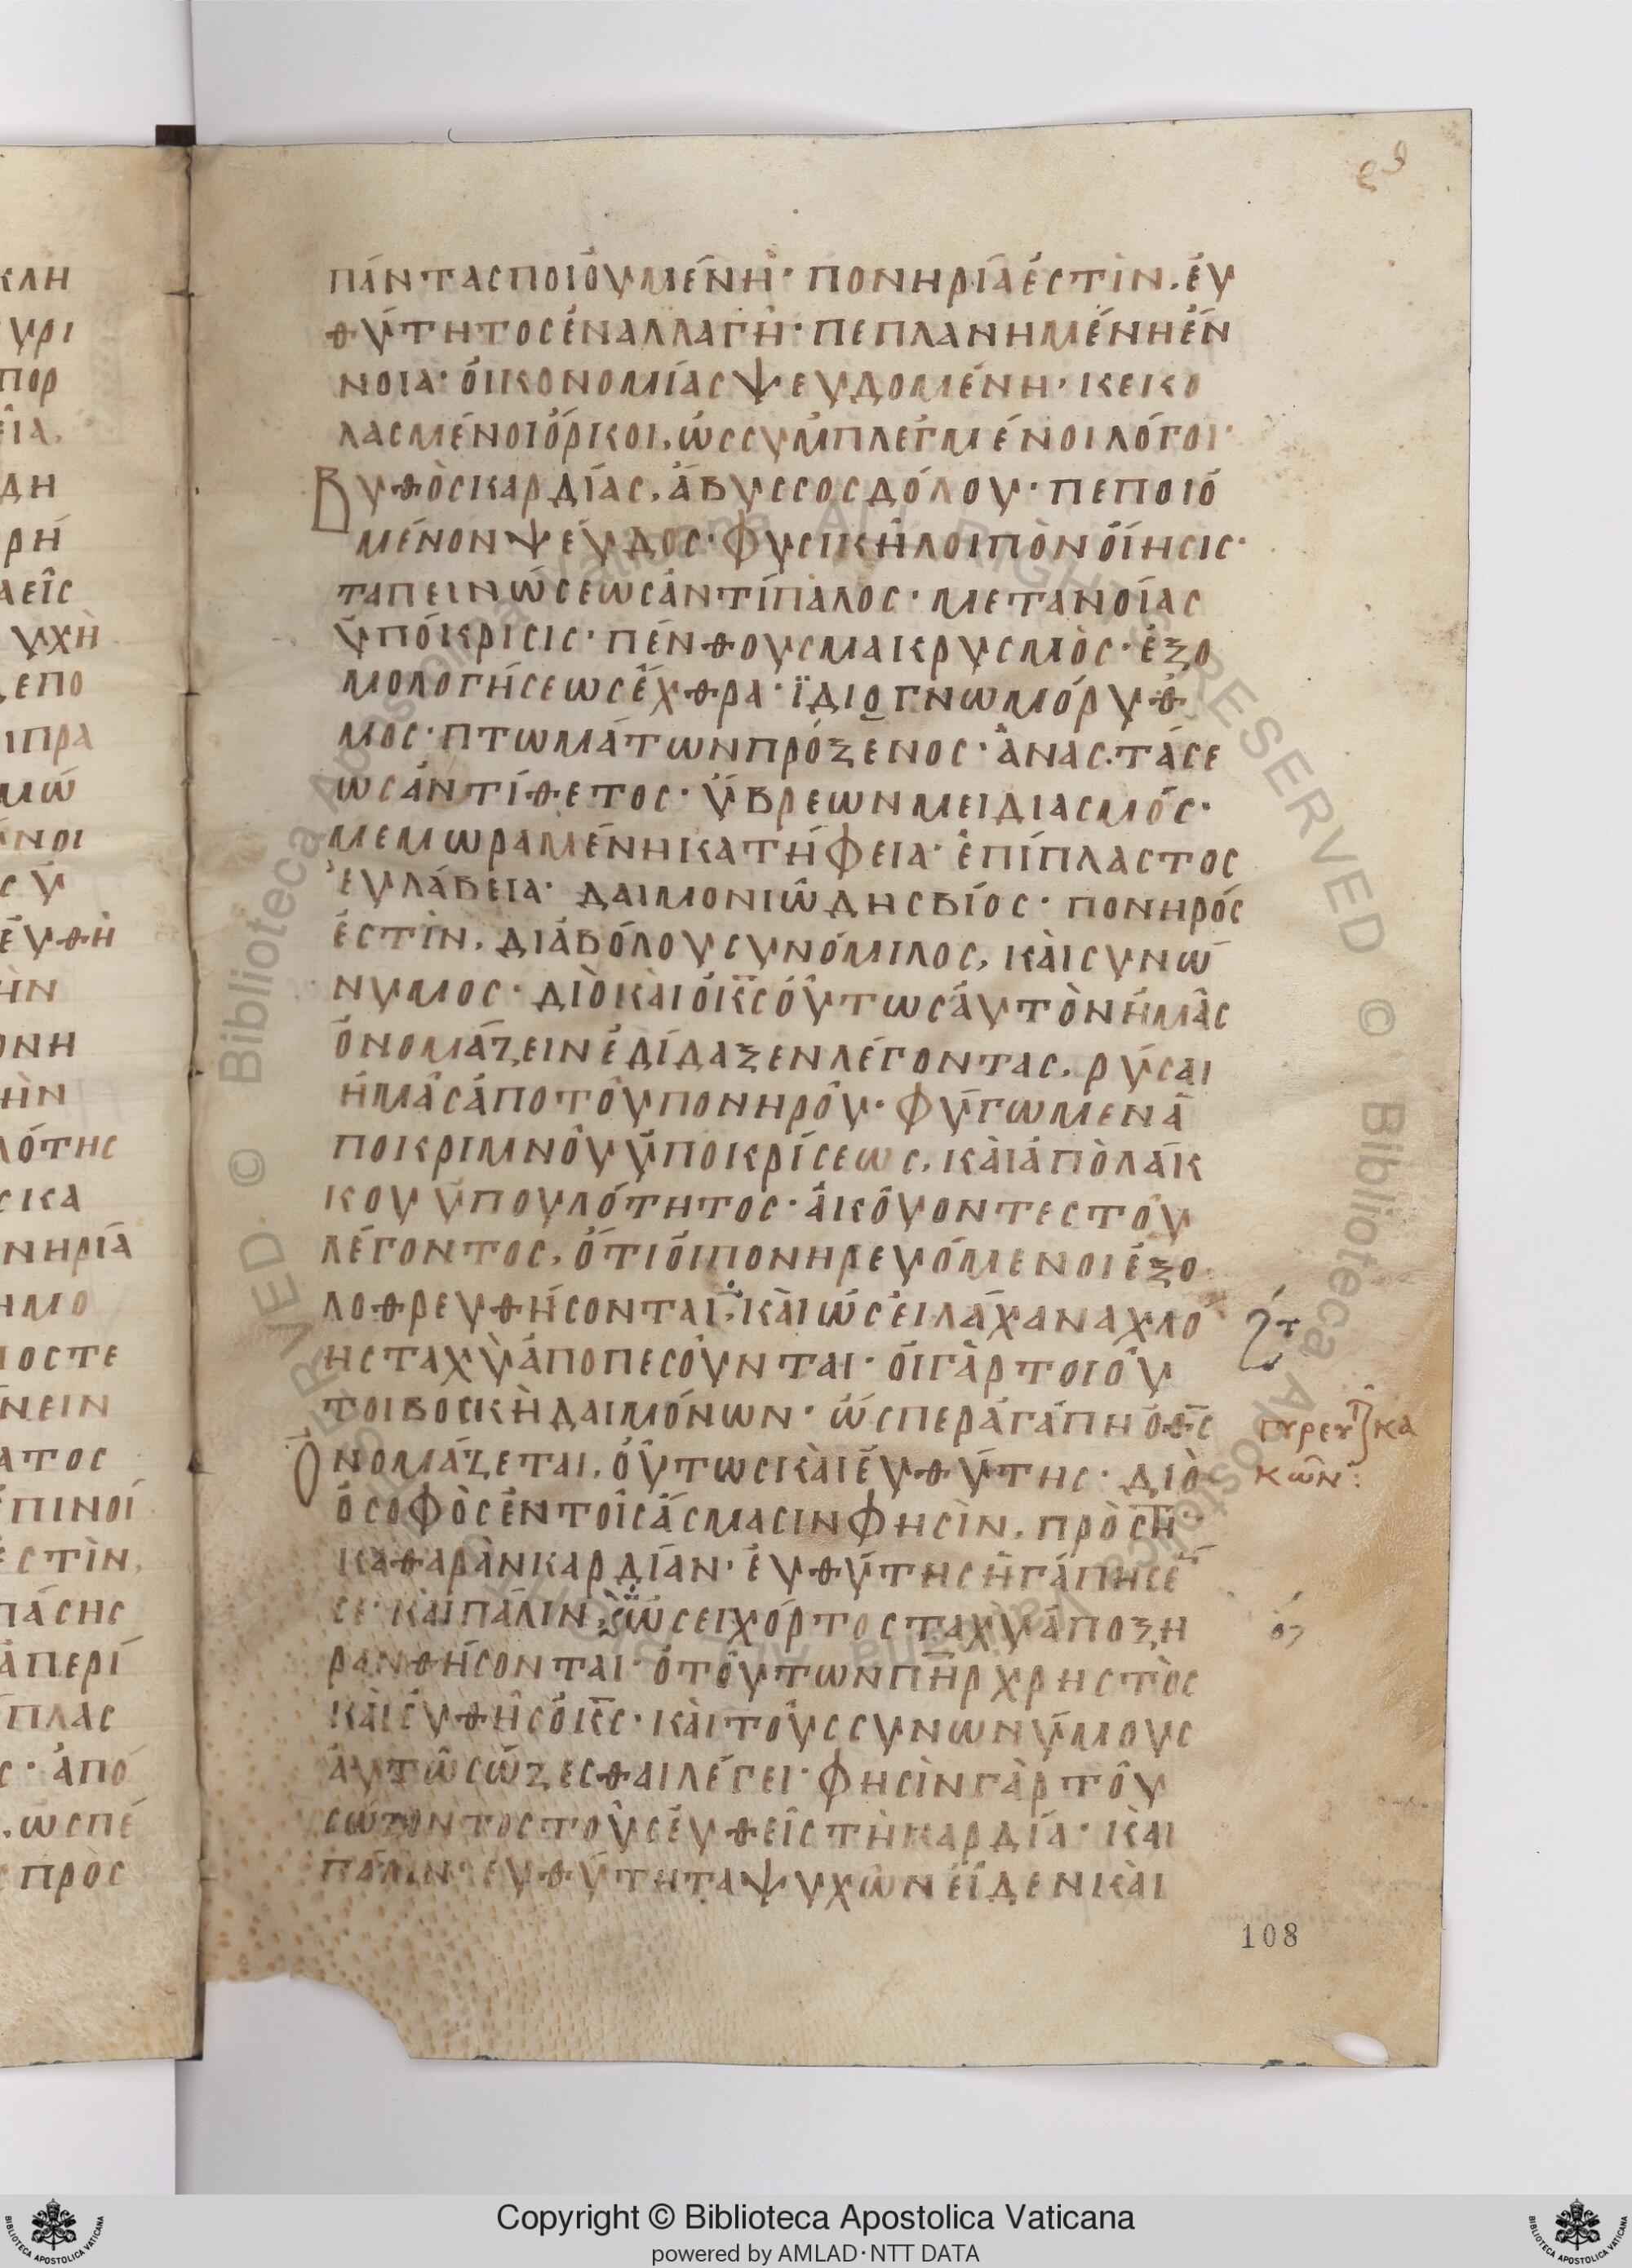 κλη
υρι
πορ
εῖα,
δη
ρή
αεῖς
υχὴ
επο
ιπρα
μώ
άνοι
ς ὑ
ἐυθὴ
ὴν
ονη
ὴν
λότης
ςικα
νηρία
ημο
ιοςτε
νειν
ατος
ἐπινοί
ἐςτὶν,
πάςης
ἀπερί
πλας
ς· ἀπό
,ωςπέ
πρὸς
πάντας ποιουμένη· πονηρία ἐςτὶν, ἐυ
θύτητος ἐναλλαγὴ· πεπλανημένη ἔν
νοια· ὀικονομίας ψευδομένη· κεκο
λαςμένοι ὅρκοι, ὡς ςυμπλεγμένοι λόγοι·
Βυθὸς καρδίας, ἄβυςςος δόλου· πεποιό
μένον ψεύδος· φυςικὴ λοιπὸν ὀίηςις·
ταπεινώςεως ἀντίπαλος· μετανοίας
ὑπόκριςις· πένθους μαικρυςμὸς· ἐξο
μολογήςεως ἔχθρα· ϊδιογνωμόρυθ
μος· πτωμάτων πρόξενος· ἀναςτάςε
ως ἀντίθετος· ὕβρεων μειδιαςμός·
μεμωραμένη κατήφεια· ἐπίπλαςτος
ἐυλάβεια· δαιμονιώδης βίος· πονηρός
ἐςτὶν, διαβόλου ςυνόμιλος, κὰι ςυνώ
νυμος· διὸ κὰι ὁ κ̅ς̅ ὅυτως ἀυτὸν ἡμᾶς
ὀνομάζειν ἐδίδαξεν λέγοντας, ρύςαι
ἡμᾶς ἀπο τοῦ πονηροῦ· φύγωμεν ἀ
πο κριμνοῦ ὑποκρίςεως, κὰι ἀπὸ λάκ
κου ὑπουλότητος· ἀκούοντες τοῦ
λέγοντος, ὅτι ὁι πονηρευόμενοι ἐξο
λοθρευθήςονται, κὰι ὡςεὶ λάχανα χλό
ης ταχὺ ἀποπεςοῦνται· ὁι γὰρ τοιοῦ
τοι βοςκὴ δαιμόνων· ὥςπερ ἀγάπη ὁ θ̅ς̅
Ὀνομάζεται, ὅυτως κὰι ἐυθύτης· διὸ
ὁ ςοφὸς ἐν τοῖς ἄςμαςιν φηςὶν, πρὸς τ̅ὴ̅
καθαρὰν καρδίαν· ἐυθύτης ἠγάπηςέ
ςε· κὰι πάλιν, ὡςει χόρτος ταχὺ ἀποξη
ρανθήςονται· ὁ τούτων π̅ὴ̅ρ χρηςτὸς
κὰι ἐυθὴς ὁ κ̅ς̅· κὰι τοὺς ςυνωνύμους
ἀυτῶ ςώζεςθαι λέγει· φηςὶν γὰρ τοῦ
ςώζοντος τοὺς ἐυθεῖς τῆ καρδία· κὰι
πάλιν· ἐυθύτητα ψυχῶν εἶδεν κὰι
κῶν:
108
Copyright © Biblioteca Apostolica Vaticana
powered by AMLAD·NTT DATA